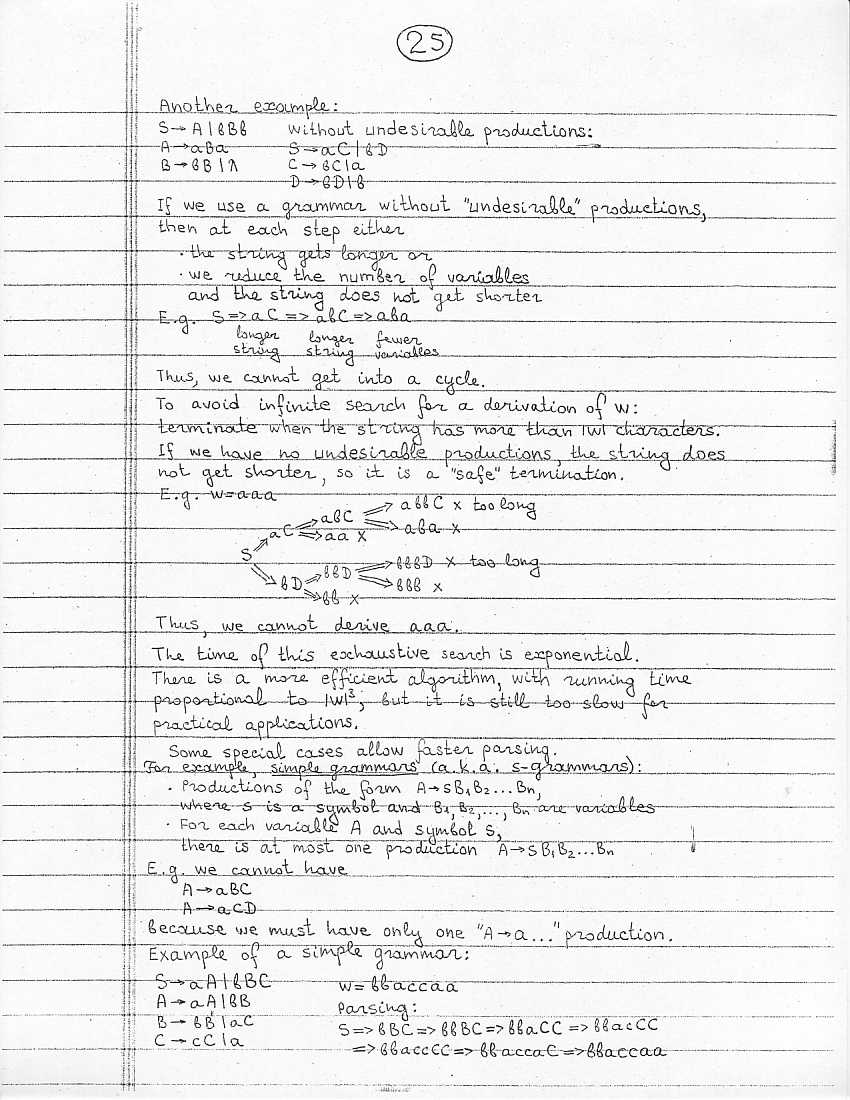 25
Another example:
S→A|bBb without undesirable productions:
A→aBa S→aC|bD
B→bB|λ C→bC|a
D→bD|b
If we use a grammar without "undesirable" productions,
then at each step either
· the string gets longer or
· we reduce the number of variables
and the string does not get shorter
E.g. S=>aC=>abC=>aba
longer longer fewer
string string variables
Thus, we cannot get into a cycle.
To avoid infinite search for a derivation of w:
terminate when the string has more than |w| characters.
If we have no undesirable productions, the string does
not get shorter, so it is a "safe" termination.
E.g. w=aaa
S => aC => abC => abbC x too long
=> aba x
=> aa x
=> bD => bbD => bbbD x too long
=> bbb x
=> bb x
Thus, we cannot derive aaa.
The time of this exhaustive search is exponential.
There is a more efficient algorithm, with running time
proportional to |w|³, but it is still too slow for
practical applications.
Some special cases allow faster parsing.
For example, simple grammars (a.k.a. s-grammars):
· Productions of the form A→sB₁B₂...Bn,
where s is a symbol and B₁,B₂,..., Bn are variables
· For each variable A and symbol s,
there is at most one production A→sB₁B₂...Bn
E.g. we cannot have
A→aBC
A→aCD
because we must have only one "A→a..." production.
Example of a simple grammar:
S→aA|bBC w=bbaccaa
A→aA|bB Parsing:
B→bB|aC S=>bBC=>bbBC=>bbaCC=>bbacCC
C→cC|a =>bbaccCC=>bbaccaC=>bbaccaa